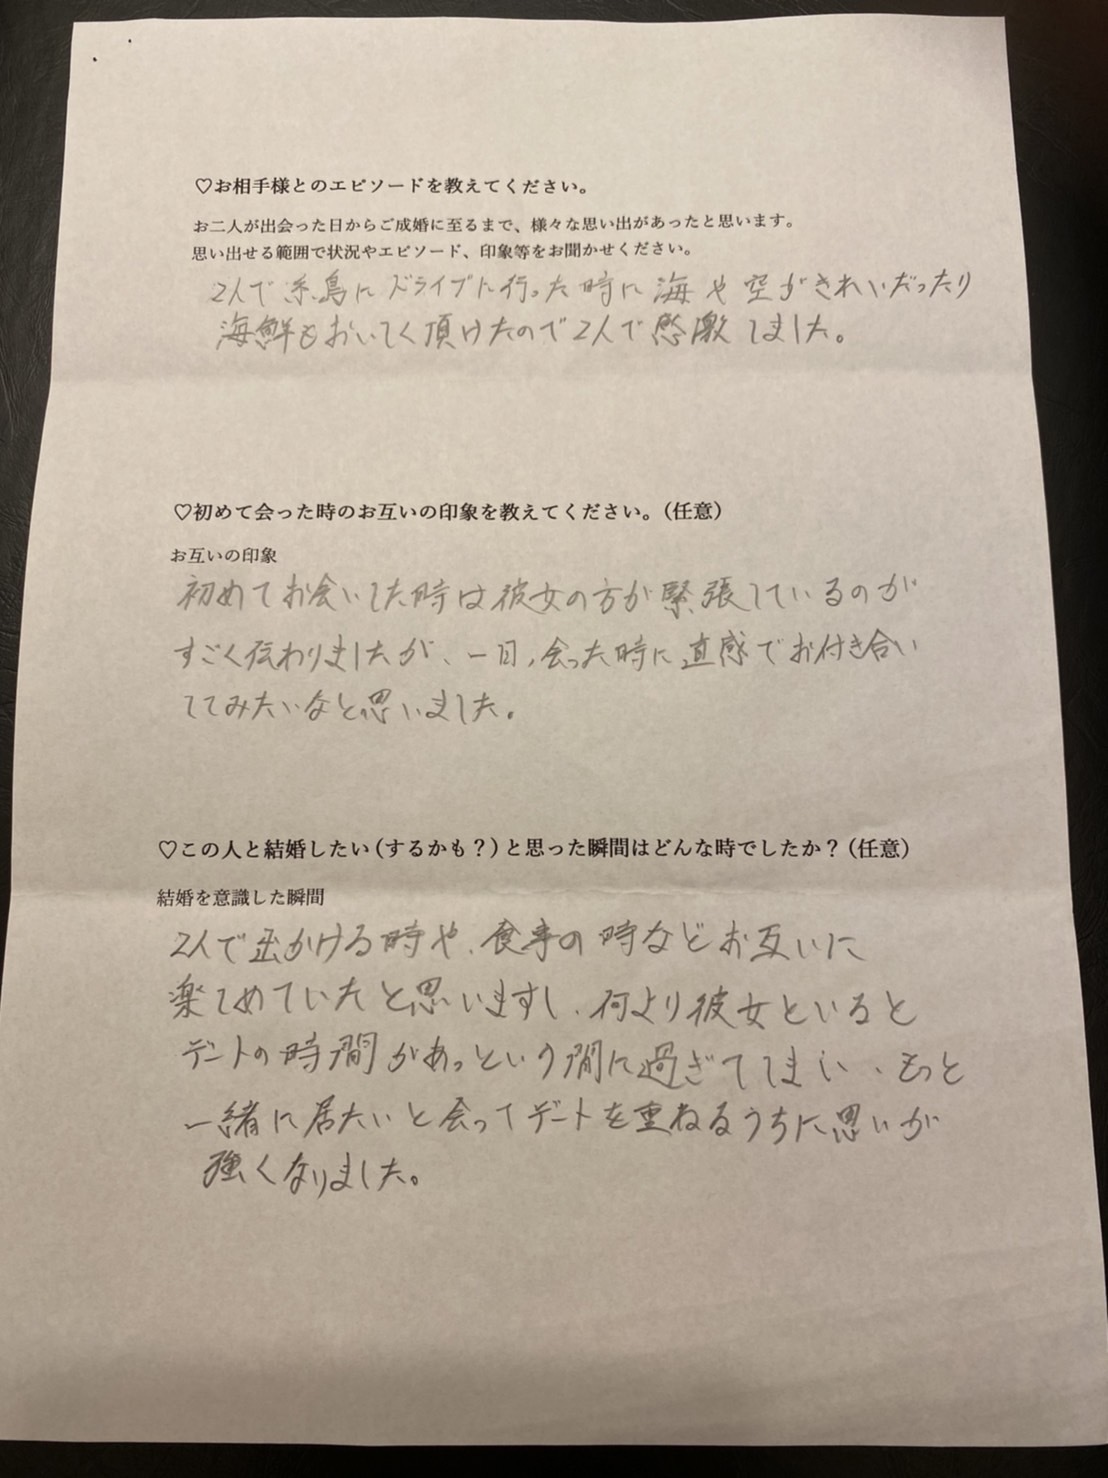 ♡お相手様とのエピソードを教えてください。
お二人が出会った日からご成婚に至るまで、様々な思い出があったと思います。
思い出せる範囲で状況やエピソード、印象等をお聞かせください。
2人で糸島にドライブに行った時に海や空がきれいだったり
海鮮もおいしく頂けたので2人で感激しました。
♡初めて会った時のお互いの印象を教えてください。（任意）
お互いの印象
初めてお会いした時は彼女の方が緊張しているのが
すごく伝わりましたが、一日、会った時に直感でお付き合い
してみたいなと思いました。
♡この人と結婚したい（するかも？）と思った瞬間はどんな時でしたか？（任意）
結婚を意識した瞬間
2人で出かける時や、食事の時などお互いに
楽しめていたと思いますし、何より彼女といると
デートの時間があっという間に過ぎてしまい、もっと
一緒に居たいと会ってデートを重ねるうちに思いが
強くなりました。